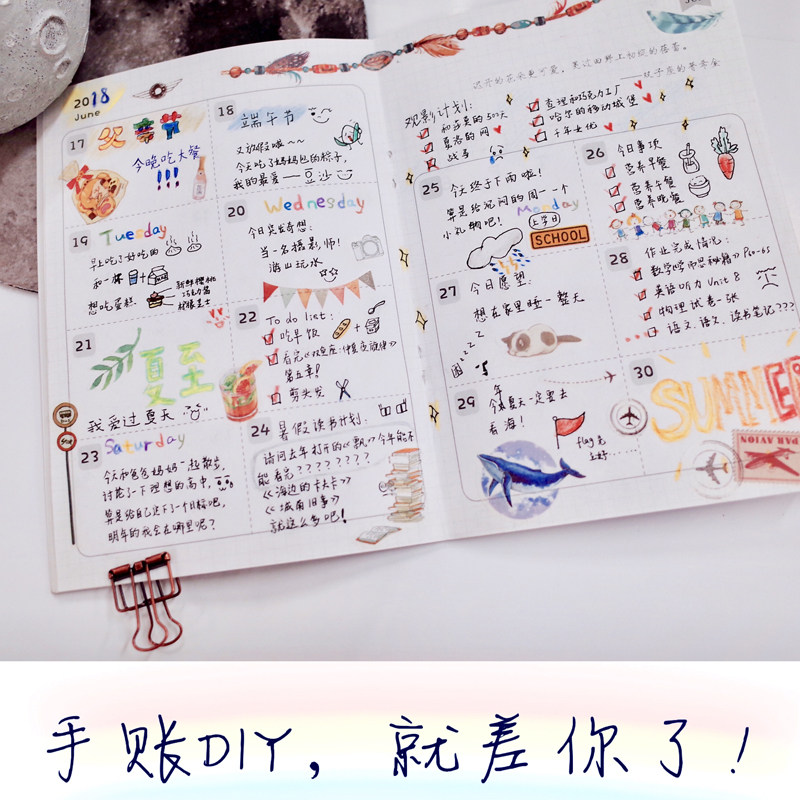 2018
June
17 父亲节
今晚吃大餐
!!!
18 端午节
又放假啦~~
今天吃了妈妈包的粽子,
我的最爱——豆沙
19 Tuesday
早上吃了好吃的
和一杯
想吃蛋糕
新鲜樱桃
巧克力酱
20 Wednesday
今日突发奇想:
当一名摄影师!
游山玩水
21 夏至
我爱过夏天
22
To do list:
吃早饭
+
第五章!
剪头发
23 Saturday
今天和爸爸妈妈一起散步,
讨论了一下理想的高中,
算是给自己定下了一个目标吧,
明年的我会在哪里呢?
24 暑假读书计划:
请问去年打开的《飘》今年能不
能看完????????
《海边的卡夫卡》
《城南旧事》
就这么多吧!
观影计划:
和莎莫的500天
夏洛的网
战马
查理和巧克力工厂
哈尔的移动城堡
千年女优
25 今天终于下雨啦!
算是给沉闷的周一一个
小礼物吧!
Monday
上学日
SCHOOL
26 今日事项
营养早餐
营养午餐
营养晚餐
27 今日愿望:
想在家里睡一整天
zzzz
28 作业完成情况:
英语听力 Unit 8
物理试卷一张
语文、语文、读书笔记???
29
今年夏天一定要去
看海!
flag先
立好……
30
SUMMER
PAR AVION
手账DIY,就差你了!